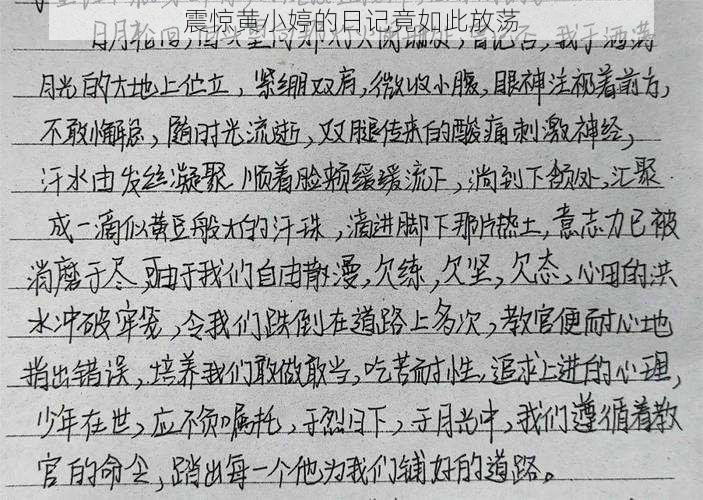 震惊黄小婷的日记竟如此放荡
日月轮回,我于洒满
月光的大地上伫立,紧绷双肩,微收小腹,眼神注视着前方,
不敢懈怠,随时光流逝,双腿传来的酸痛刺激神经,
汗水由发丝凝聚顺着脸颊缓缓流下,淌到下颌处,汇聚
成一滴似黄豆般大的汗珠,滴进脚下那片热土,意志力已被
消磨于尽,可由于我们自由散漫,欠练,欠坚,欠态,心田的洪
水冲破牢笼,令我们跌倒在道路上多次,教官便耐心地
指出错误,培养我们敢做敢当,吃苦耐性,追求上进的心理,
少年在世,应不负嘱托,于烈日下,于月光中,我们遵循着教
官的命令,踏出每一个他为我们铺好的道路。